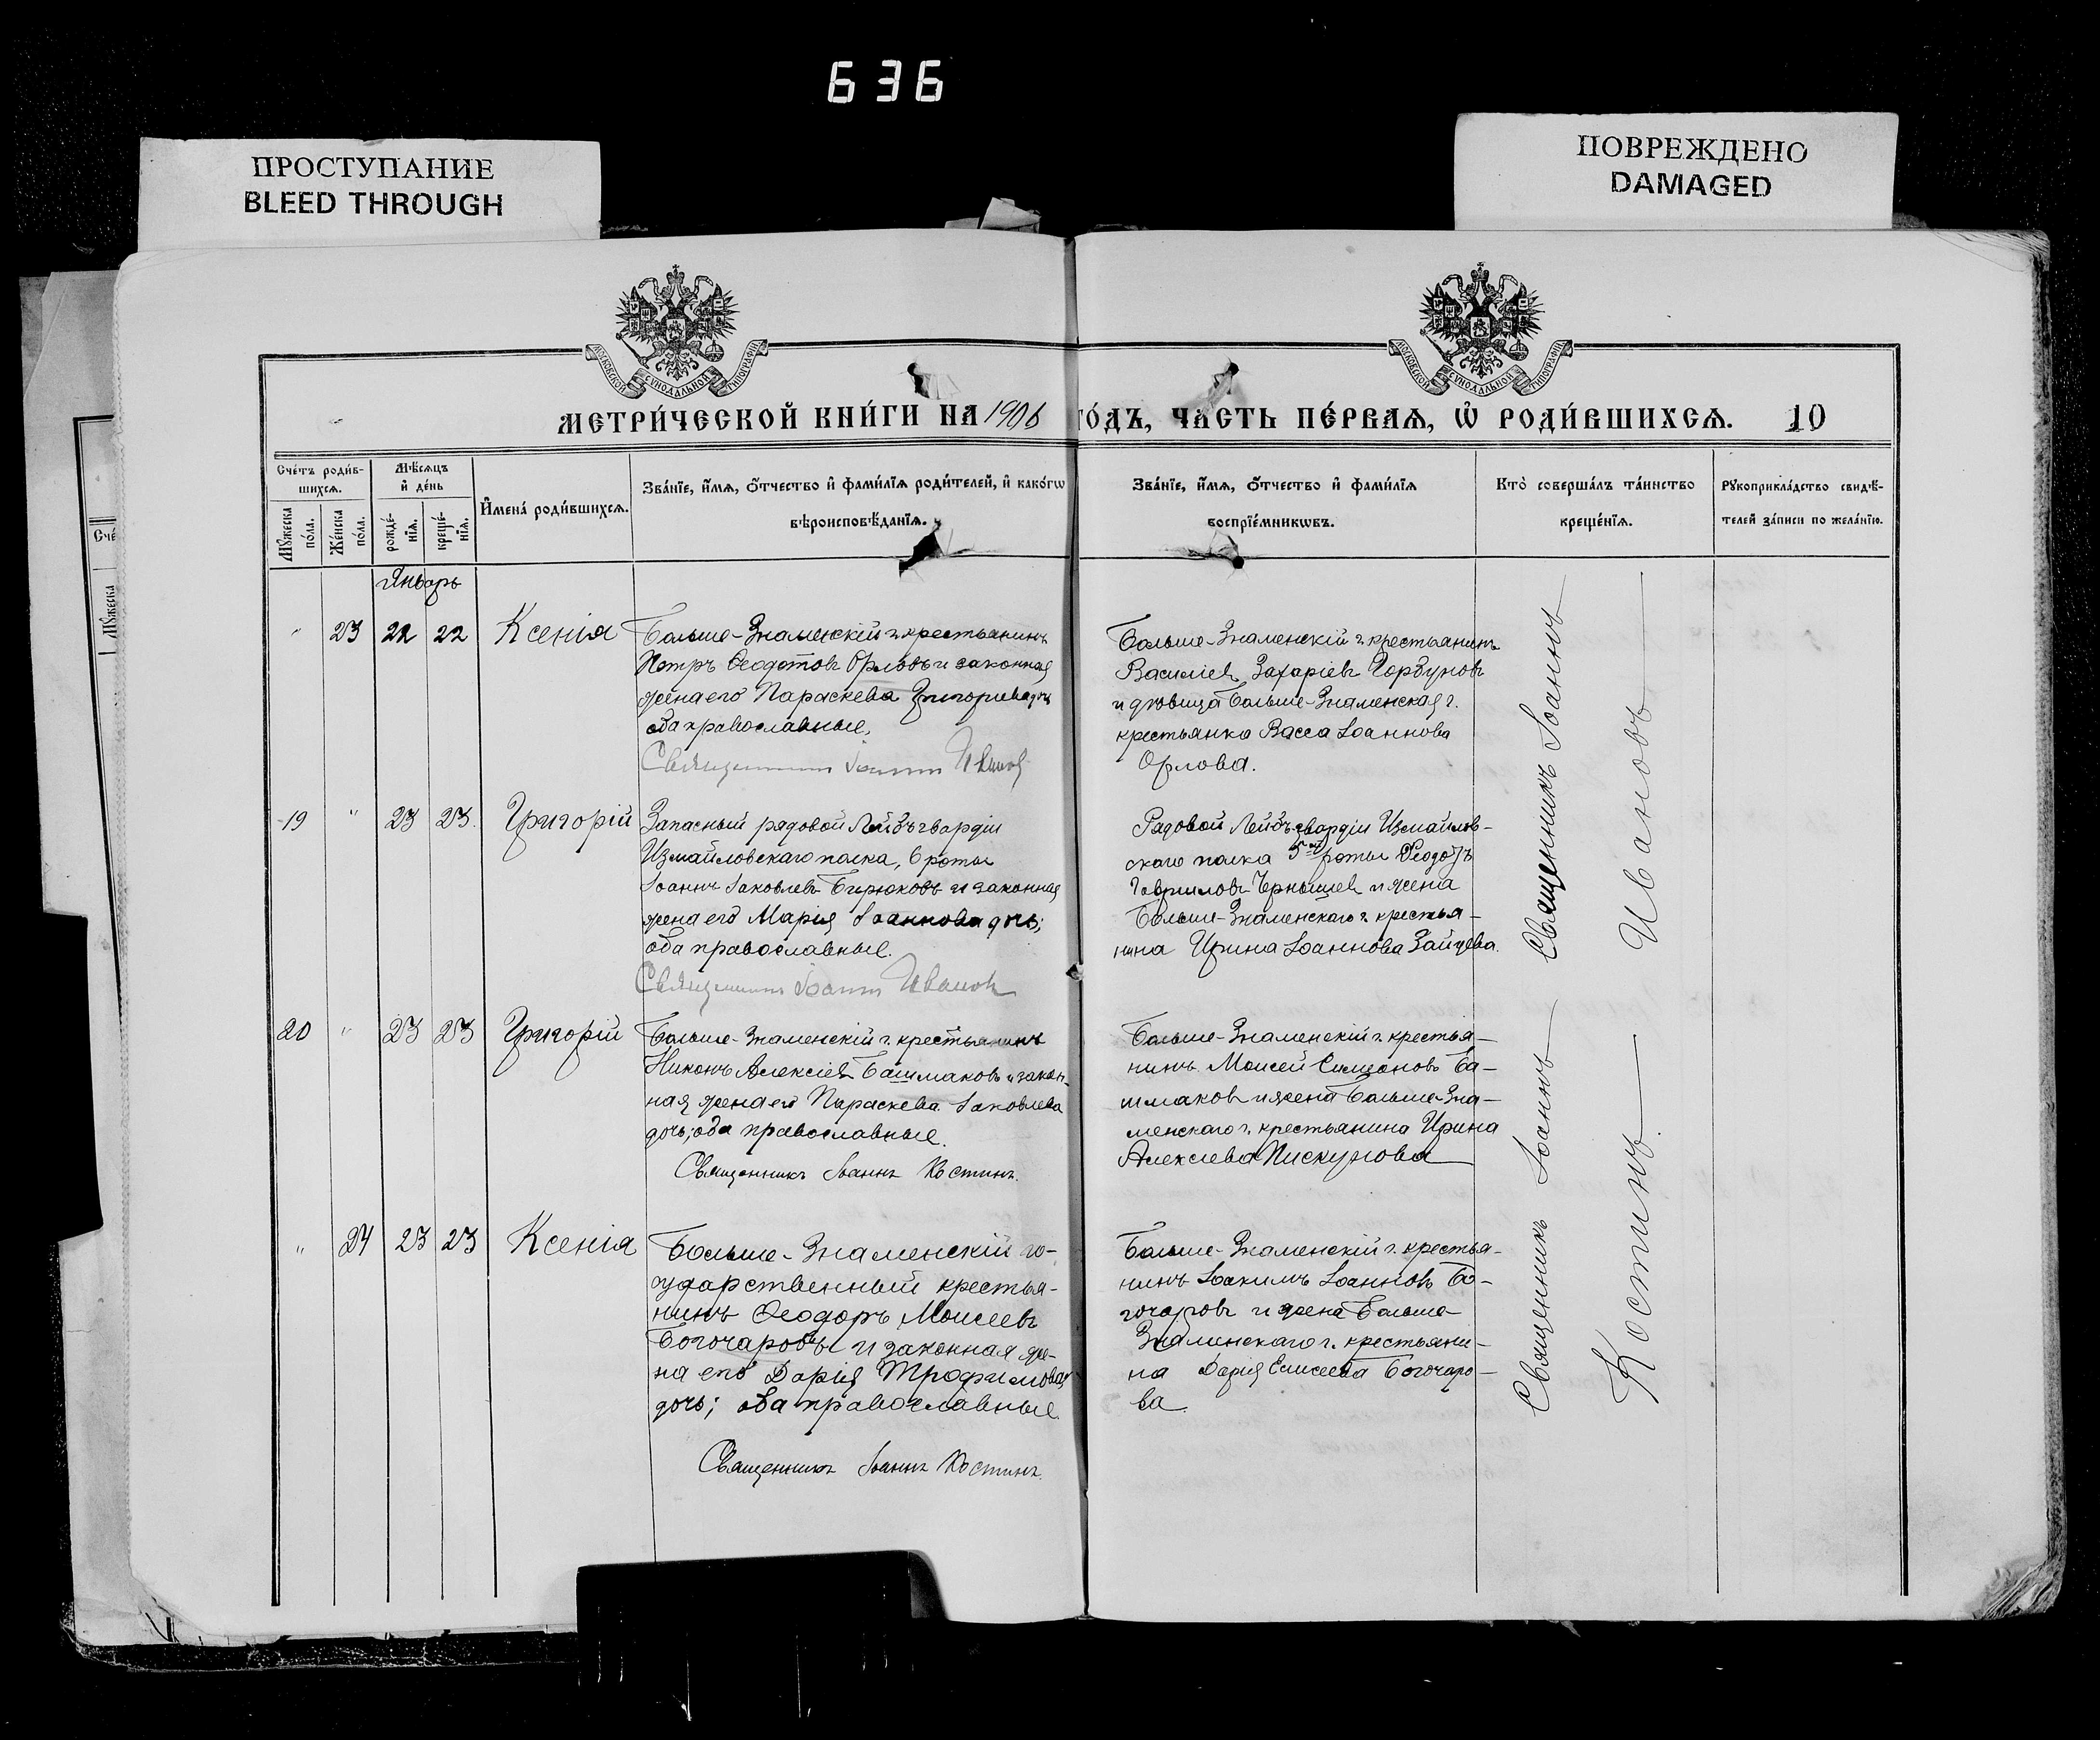 636
ПРОСТУПАНИЕ
BLEED THROUGH
ПОВРЕЖДЕНО
DAMAGED
МОСКОВСКОЙ СѴНОДАЛЬНОЙ ТИПОГРАФІИ
МОСКОВСКОЙ СѴНОДАЛЬНОЙ ТИПОГРАФІИ
МЕТРИ́ЧЕСКОЙ КНИ́ГИ НА 1906 ГО́ДЪ, ЧА́СТЬ ПЕ́РВАЯ, Ѡ҆ РОДИ́ВШИХСЯ. 10
Сче́тъ роди́в-
шихся.
Мѣ́сяцъ
и҆ де́нь
Мꙋ́жеска
по́ла.
Же́нска
по́ла.
рожде́-
нїя.
креще́-
нїя.
И҆мена̀ роди́вшихся.
Зва́нїе, и҆́мя, ѻ҆́тчество и҆ фами́лїя роди́телей, и҆ како́гѡ
вѣроисповѣ́данїя.
Зва́нїе, и҆́мя, ѻ҆́тчество и҆ фами́лїя
воспрїе́мникѡвъ.
Кто̀ соверша́лъ та́инство
креще́нїя.
Рꙋкоприкла́дство свидѣ́-
телей за́писи по жела́нїю.
Январь
" 23 22 22 Ксенія
Больше-Знаменскій г. крестьянинъ
Петръ Ѳеодотовъ Орловъ и законная
жена его Параскева Григорьева дочь
оба православные.
Священникъ Іоаннъ Ивановъ
Больше-Знаменскій г. крестьянинъ
Василій Захаріевъ Горбуновъ
и дѣвица Больше-Знаменская г.
крестьянка Васса Іоаннова
Орлова.
19 " 23 23 Григорій
Запасный рядовой Лейбъ гвардіи
Измайловскаго полка, 6 роты
Іоаннъ Іаковлевъ Бирюковъ и законная
жена его Марія Іоаннова дочь;
оба православные.
Священникъ Іоаннъ Ивановъ
Рядовой Лейбъ гвардіи Измайлов-
скаго полка 5ой роты Ѳеодотъ
Гавриловъ Чернышев и жена
Больше-Знаменскаго г. крестья-
нина Ирина Іоаннова Зайцева.
Священникъ Іоаннъ
Ивановъ
20 " 23 23 Григорій
Больше-Знаменскій г. крестьянинъ
Никонъ Алексіев Башмаковъ и закон-
ная жена его Параскева Іаковлева
дочь; оба православные.
Священникъ Іоаннъ Костинъ.
Больше-Знаменскій г. крестья-
нинъ Моисей Симеоновъ Ба-
шмаковъ и жена Больше-Зна-
менскаго г. крестьянина Ирина
Алексіева Пискунова
" 24 23 23 Ксенія
Больше-Знаменскій го-
сударственный крестья-
нинъ Ѳеодоръ Моисеевъ
Богочаровъ и законная же-
на его Дарія Трофимова
дочь; оба православные.
Священникъ Іоаннъ Костинъ.
Больше-Знаменскій г. крестья-
нинъ Іоакимъ Іоанновъ Бо-
гочаровъ и жена Больше-
Знаменскаго г. крестьяни-
на Дарія Елисеева Богочаро-
ва.
Священникъ Іоаннъ
Костинъ.
Сче
Мꙋ́жеска